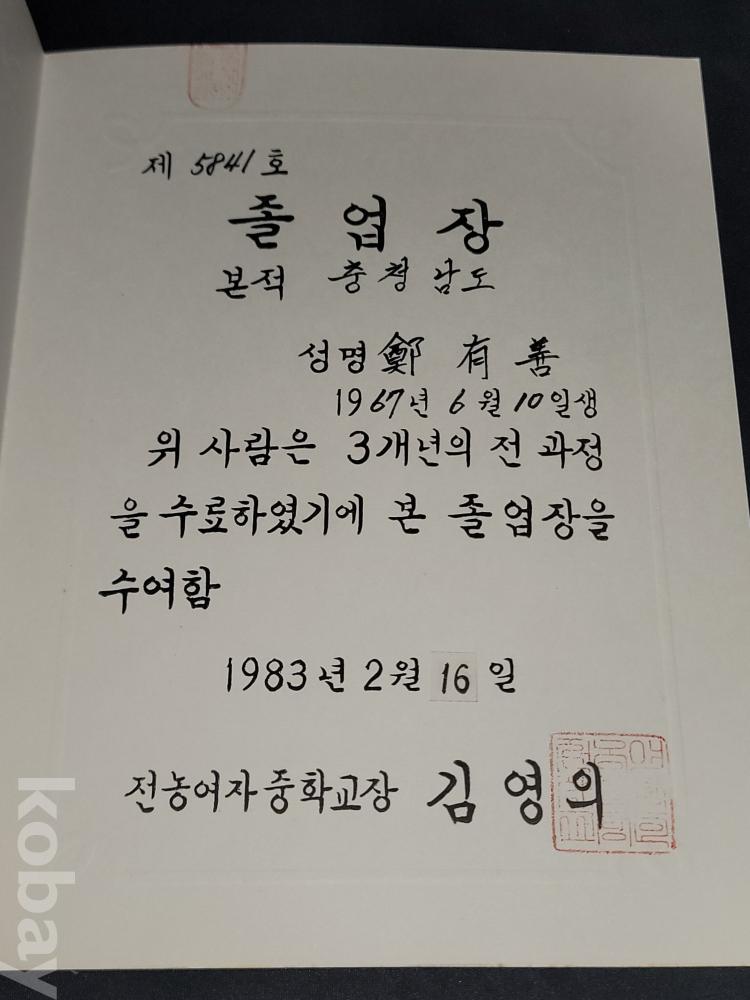 제 5841 호
졸 업 장
본적 충청남도
성명 鄭 有 善
1967년 6월 10일생
위 사람은 3개년의 전 과정
을 수료하였기에 본 졸업장을
수여함
1983년 2월 16일
전농여자중학교장 김영의
kobay